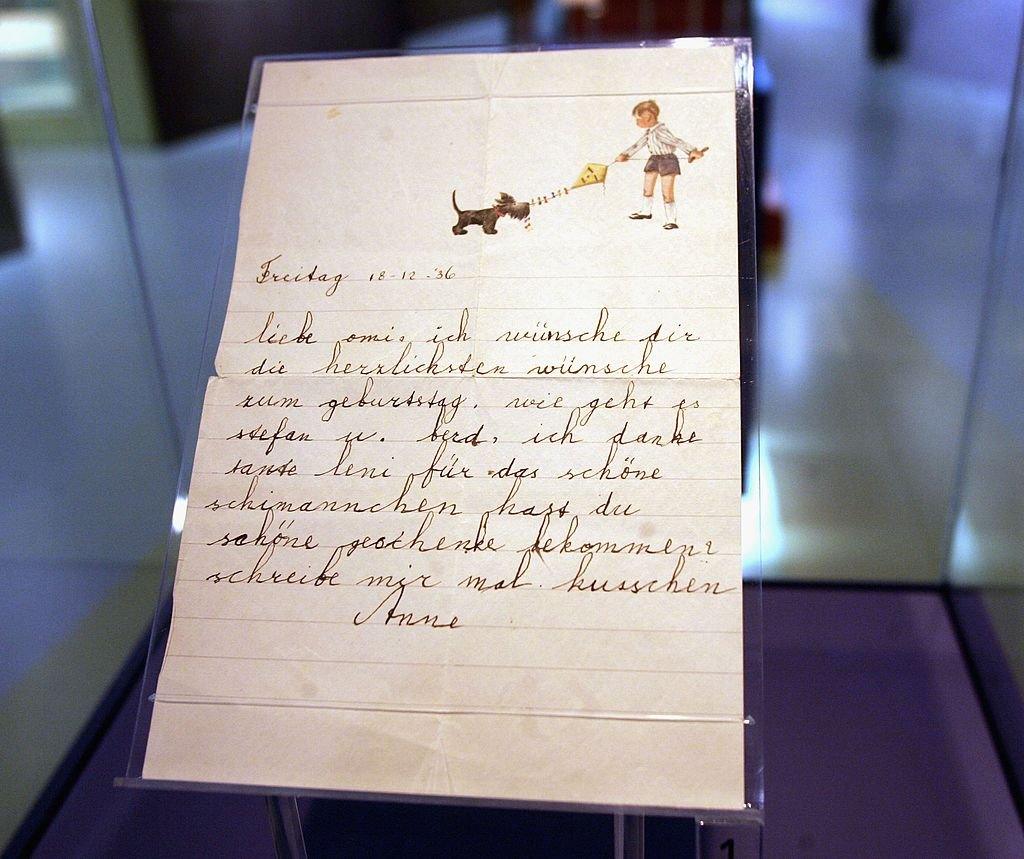 Freitag 18-12-'36
liebe omi, ich wünsche dir
die herzlichsten wünsche
zum geburtstag. wie geht es
stefan u. berd, ich danke
tante leni für das schöne
schimannchen hast du
schöne geschenke bekommen?
schreibe mir mal. kusschen
Anne
1